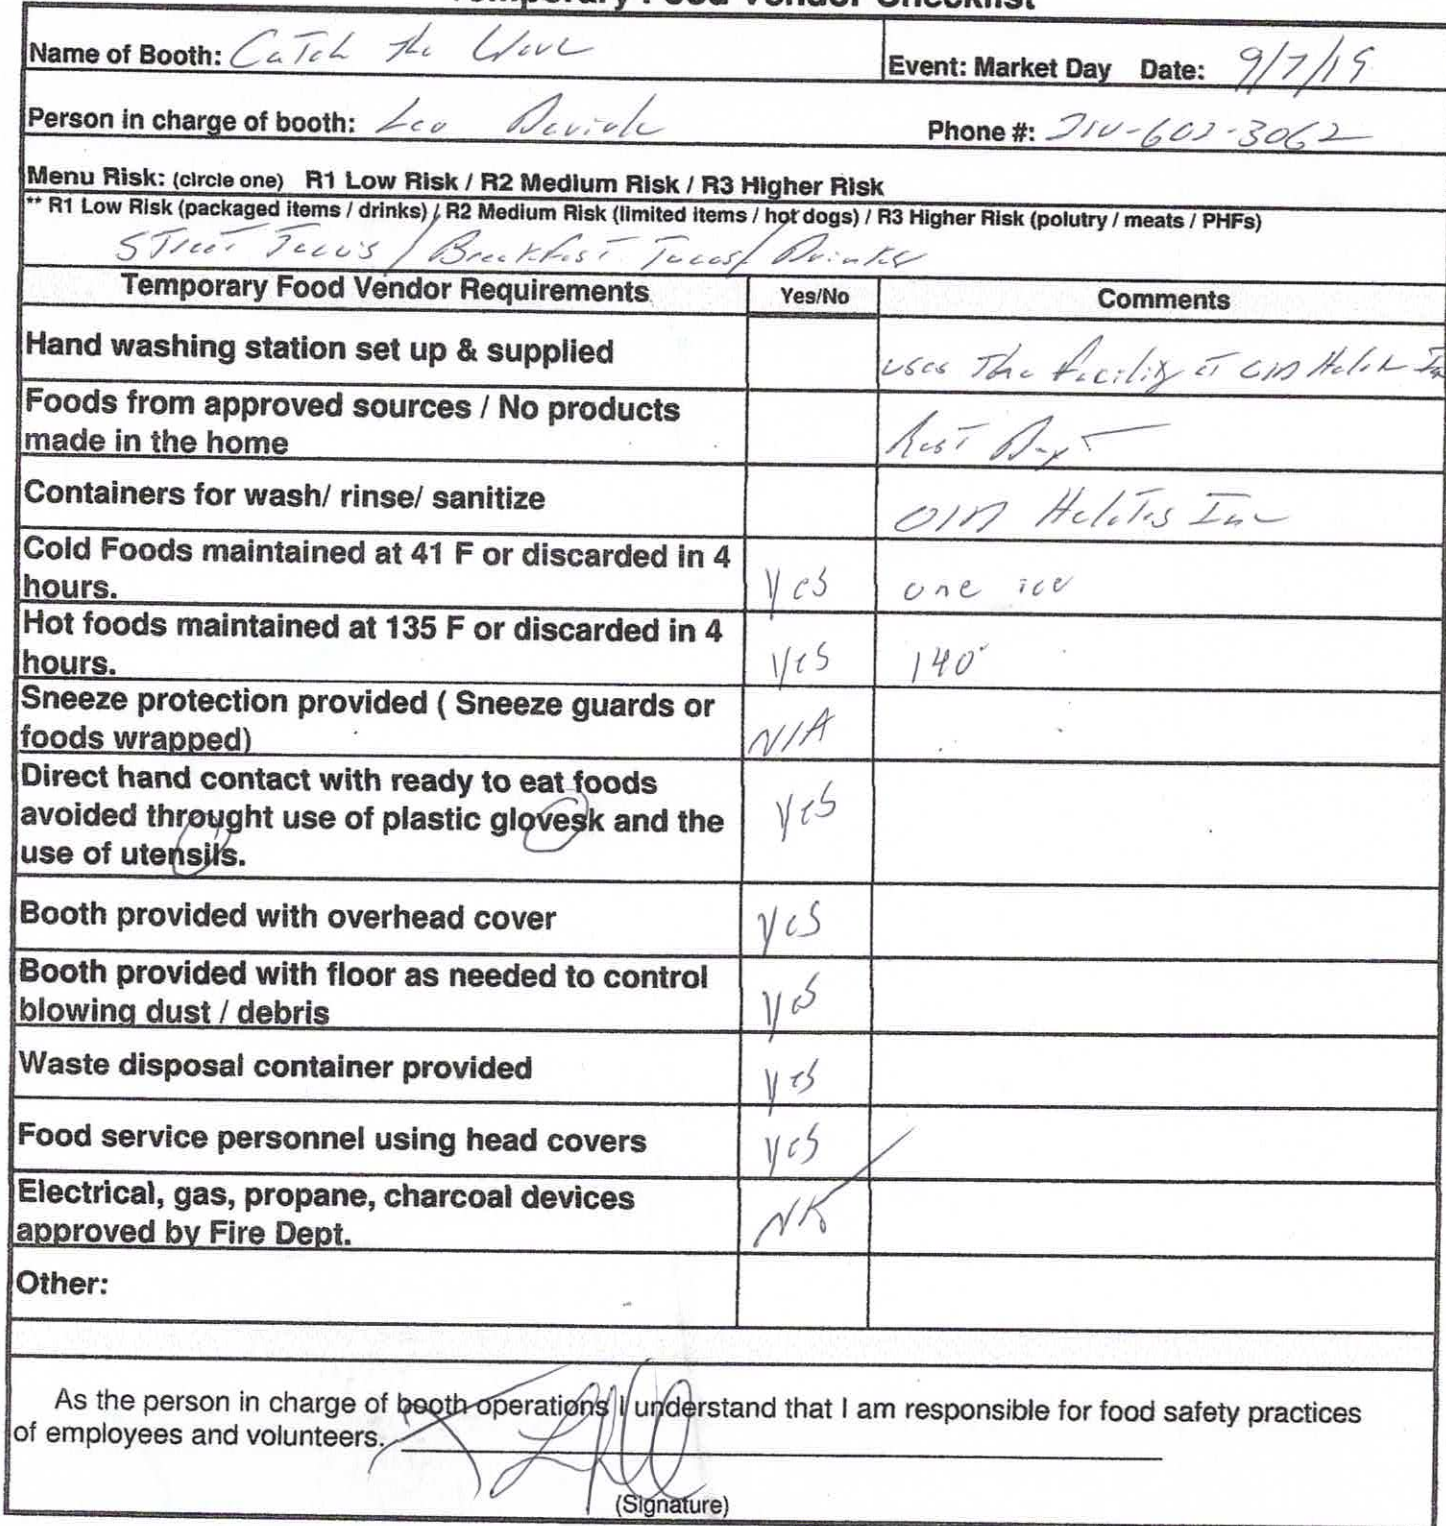 Temporary Food Vendor Checklist
Name of Booth: Catch the Wave
Event: Market Day Date: 9/7/19
Person in charge of booth: Leo
Phone #: 210-602-3062
Menu Risk: (circle one) R1 Low Risk / R2 Medium Risk / R3 Higher Risk
** R1 Low Risk (packaged items / drinks) / R2 Medium Risk (limited items / hot dogs) / R3 Higher Risk (polutry / meats / PHFs)
Street Tacos / Breakfast Tacos / Drinks
Temporary Food Vendor Requirements Yes/No Comments
Hand washing station set up & supplied uses The facility at Old
Foods from approved sources / No products
made in the home Rest Dept
Containers for wash/ rinse/ sanitize Old
Cold Foods maintained at 41 F or discarded in 4
hours. Yes one ice
Hot foods maintained at 135 F or discarded in 4
hours. Yes 140°
Sneeze protection provided ( Sneeze guards or
foods wrapped) N/A
Direct hand contact with ready to eat foods
avoided throught use of plastic glovesk and the
use of utensils. Yes
Booth provided with overhead cover Yes
Booth provided with floor as needed to control
blowing dust / debris Yes
Waste disposal container provided Yes
Food service personnel using head covers Yes
Electrical, gas, propane, charcoal devices
approved by Fire Dept.
Other:
As the person in charge of booth operations I understand that I am responsible for food safety practices
of employees and volunteers.
(Signature)